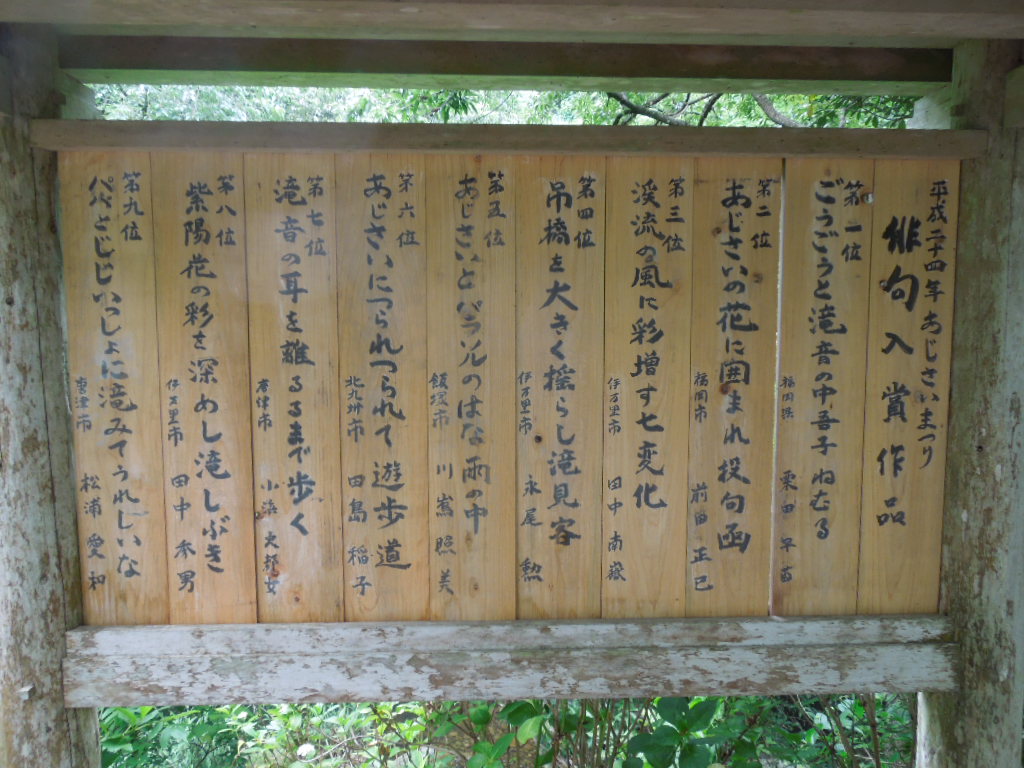 平成二十四年 あじさいまつり
俳句入賞作品
第一位
ごうごうと滝音の中吾子ねむる
福岡県 栗田 早苗
第二位
あじさいの花に囲まれ投句函
福岡市 前田 正巳
第三位
渓流の風に彩増す七変化
伊万里市 田中 南嶽
第四位
吊橋を大きく揺らし滝見客
伊万里市 永尾 勲
第五位
あじさいとパラソルのはな雨の中
飯塚市 川嶌 照美
第六位
あじさいにつられつられて遊歩道
北九州市 田島 稲子
第七位
滝音の耳を離るるまで歩く
唐津市 小浜 史都女
第八位
紫陽花の彩を深めし滝しぶき
伊万里市 田中 秀男
第九位
パパとじじいっしょに滝みてうれしいな
唐津市 松浦 愛和